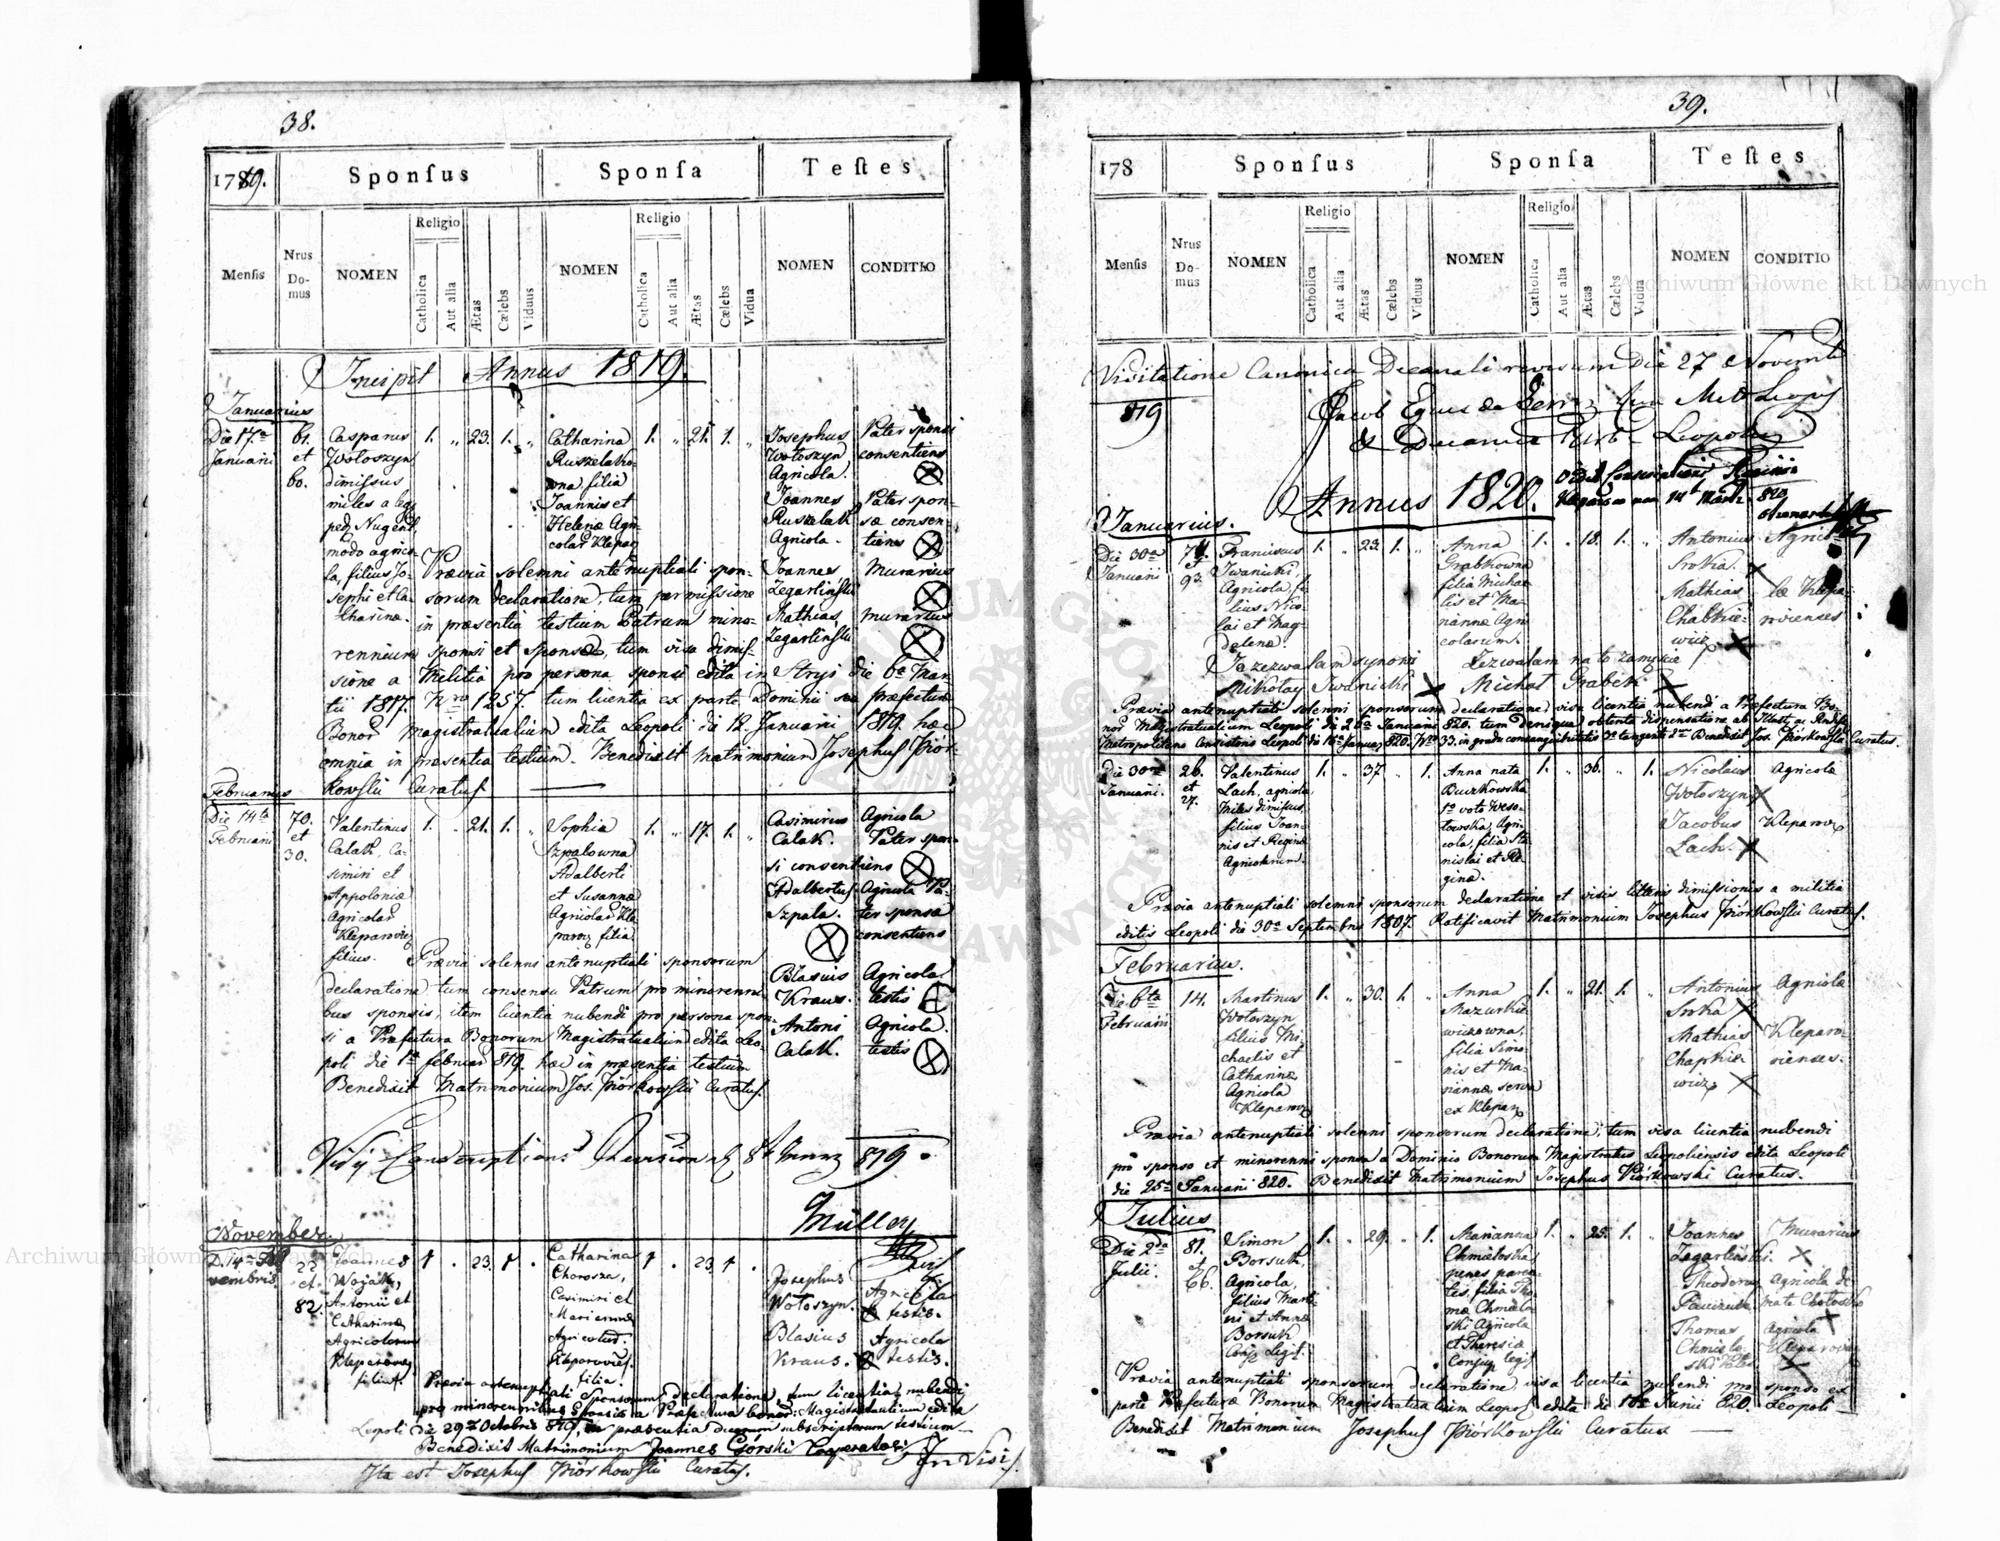 38.
1789.
Sponſus
Sponſa
Teſtes
Menſis
Nrus Domus
NOMEN
Religio
Catholica
Aut alia
Ætas
Cælebs
Viduus
NOMEN
Religio
Catholica
Aut alia
Ætas
Cælebs
Vidua
NOMEN
CONDITIO
Incipit Annus 1819.
Januarius
Die 17ma
Januarii
61.
et
60.
Casparus
Wołoszyn
dimissus
miles a leg.
ped. Nugent,
modo agrico-
la, filius Jo-
sephi et Ca-
tharinæ.
1. „ 23. 1. „
Catharina
Ruszelako-
wna filia
Joannis et
Helenæ Agri-
colar Klepar
1. „ 21. 1. „
Josephus
Wołoszyn
Agricola.
Pater sponsi
consentiens
Joannes
Ruszelak
Agricola.
Pater spon-
sæ consen-
tiens
Joannes
Zegarliński
Murarius
Mathias
Zegarliński
Murarius
Prævia solemni antenuptiali spon-
sorum declaratione, tum permissione
in præsentia testium Patrum mino-
rennium sponsi et sponsæ, tum visa dimis-
sione a Militia pro persona sponsi edita in Stryi die 6ta Mar-
tii 1817. Nro 1257. tum licentia ex parte Dominii seu præfecturæ
Bonor Magistratualium edita Leopoli die 12 Januarii 1819. hæc
omnia in præsentia testium. Benedixit matrimonium Josephus Piór-
kowski Curatus.
Februarius
Die 14ta
Februarii
70.
et
30.
Valentinus
Calak, Ca-
simiri et
Appoloniæ
Agricolar
Kleparovien
filius.
1. „ 21. 1. „
Sophia
Szpalowna
Adalberti
et Susannæ
Agricolar Kle
parov filia
1. „ 17. 1. „
Casimirus
Calak.
Agricola
Pater spon-
si consentiens
Adalbertus
Szpala.
Agricola Pa-
ter sponsæ
consentiens
Blasius
Kraus.
Agricola
testis
Antoni
Calak.
Agricola.
testis
Prævia solenni antenuptiali sponsorum
declaratione tum consensu Patrum pro minorenni-
bus sponsis, item licentia nubendi pro persona spon-
si a Præfectura Bonorum Magistratualium edita Leo-
poli die 1ma februar 819. hæc in præsentia testium
Benedixit Matrimonium Jos. Piórkowski Curatus.
819.
Müller
November.
D. 14ta No-
vembris
22
et
82.
Joannes
Wojak,
Antonii et
Catharinæ
Agricolarum
Kleparov
filius.
1 . 23. 1 .
Catharina
Chorosza,
Casimiri et
Mariannæ
Agricolar.
Kleparovies.
filia.
1 . 23. 1 .
Josephus
Wołoszyn.
Agricola
testis.
Blasius
Kraus.
Agricola
testis.
Prævia antenuptiali Sponsorum declaratione, tum licentia nubendi
pro minorennibus Sponsis a Præfectura bonor: Magistratualium edita
Leopoli die 29na Octobris 819, in præsentia duorum subscriptorum testium
Benedixit Matrimonium Joannes Górski Cooperator
Ita est Josephus Piórkowski Curatus.
39.
178
Sponſus
Sponſa
Teſtes
Menſis
Nrus Domus
NOMEN
Religio
Catholica
Aut alia
Ætas
Cælebs
Viduus
NOMEN
Religio
Catholica
Aut alia
Ætas
Cælebs
Vidua
NOMEN
CONDITIO
Visitatione Canonica Decanali revisum Die 27 Novemb
819
Annus 1820.
Januarius.
Die 30ma
Januarii
74.
et
93.
Franciscus
Iwanicki,
Agricola, fi-
lius Nico-
lai et Mag-
delenæ.
1. „ 23. 1. „
Anna
Grabkowna
filia Micha-
lis et Ma-
riannæ Agri
colarum.
1. „ 18. 1. „
Antonius
Srokia.
Mathias
Chabkie-
wicz
Agrico-
læ Klepa-
rovienses
Ja zezwalam synowi
Mikołay Iwanicki
Zezwalam na to zamęście
Michał Grabek
Prævia antenuptiali solenni sponsorum declaratione, visa licentia nubendi a Præfectura Bo-
nor Magistratualium Leopoli die 26ta Januarii 820. tum denique obtenta dispensatione ab
Metropolitano Consistorio Leopoli die 16ta Januar 820. Nro 33. in gradu consanguinitatis Benedixit Jos. Piórkowski Curatus.
Die 30ma
Januarii.
26.
et
27.
Valentinus
Lach, agricola
Miles dimissus
filius Joan-
nis et Reginæ
Agricolarum.
1. „ 37. „ 1.
Anna nata
Buczkowska
1o voto Weso-
łowska, Agri-
cola, filia Sta-
nislai et Re-
ginæ.
1. „ 36. „ 1.
Nicolaus
Wołoszyn
Jacobus
Lach.
Agricolæ
Kleparov
Prævia antenuptiali solemni sponsorum declaratione et visis litteris dimissionis a militia
editis Leopoli die 30ma Septembris 1807. Ratificavit Matrimonium Josephus Piórkowski Curatus.
Februarius.
Die 6ta
Februarii
14.
Martinus
Wołoszyn
filius Mi-
chaelis et
Catharinæ
Agricola
Kleparov
1. „ 30. 1. „
Anna
Mazurkie-
wiczowna,
filia Simo-
nis et Ma-
riannæ, serva
ex Klepar
1. „ 21. 1. „
Antonius
Srokia
Mathias
Chapkie-
wicz
Agricolæ
Kleparo-
vienses.
Prævia antenuptiali solenni sponsorum declaratione, tum visa licentia nubendi
pro sponso et minorenni sponsa a Dominio Bonorum Magistratus Leopoliensis edita Leopoli
die 25ta Januarii 820. Benedixit Matrimonium Josephus Piórkowski Curatus.
Julius
Die 2da
Julii.
81.
et
66.
Simon
Borsuk,
Agricola,
filius Marti-
ni et Annæ
Borsuk
Conj. Legit.
1. „ 29. „ 1.
Marianna
Chmieloska
penes paren-
tes, filia Tho-
mæ Chmielo-
ski Agricola
et Theresiæ
Conjug legit
1. „ 25. 1. „
Joannes
Zegarliński.
Murarius
Theodorus
Agricola de
Thomas
Chmielo-
ski
Agricola
Kleparov
Prævia antenuptiali sponsorum declaratione, visa licentia nubendi pro sponso ex
parte Præfecturæ Bonorum Magistratualium Leopol edita die 18va Junii 820. Leopoli
Benedixit Matrimonium Josephus Piórkowski Curatus
Archiwum Główne Akt Dawnych
Archiwum Główne Akt Dawnych
ARCHIWUM GŁÓWNE AKT DAWNYCH